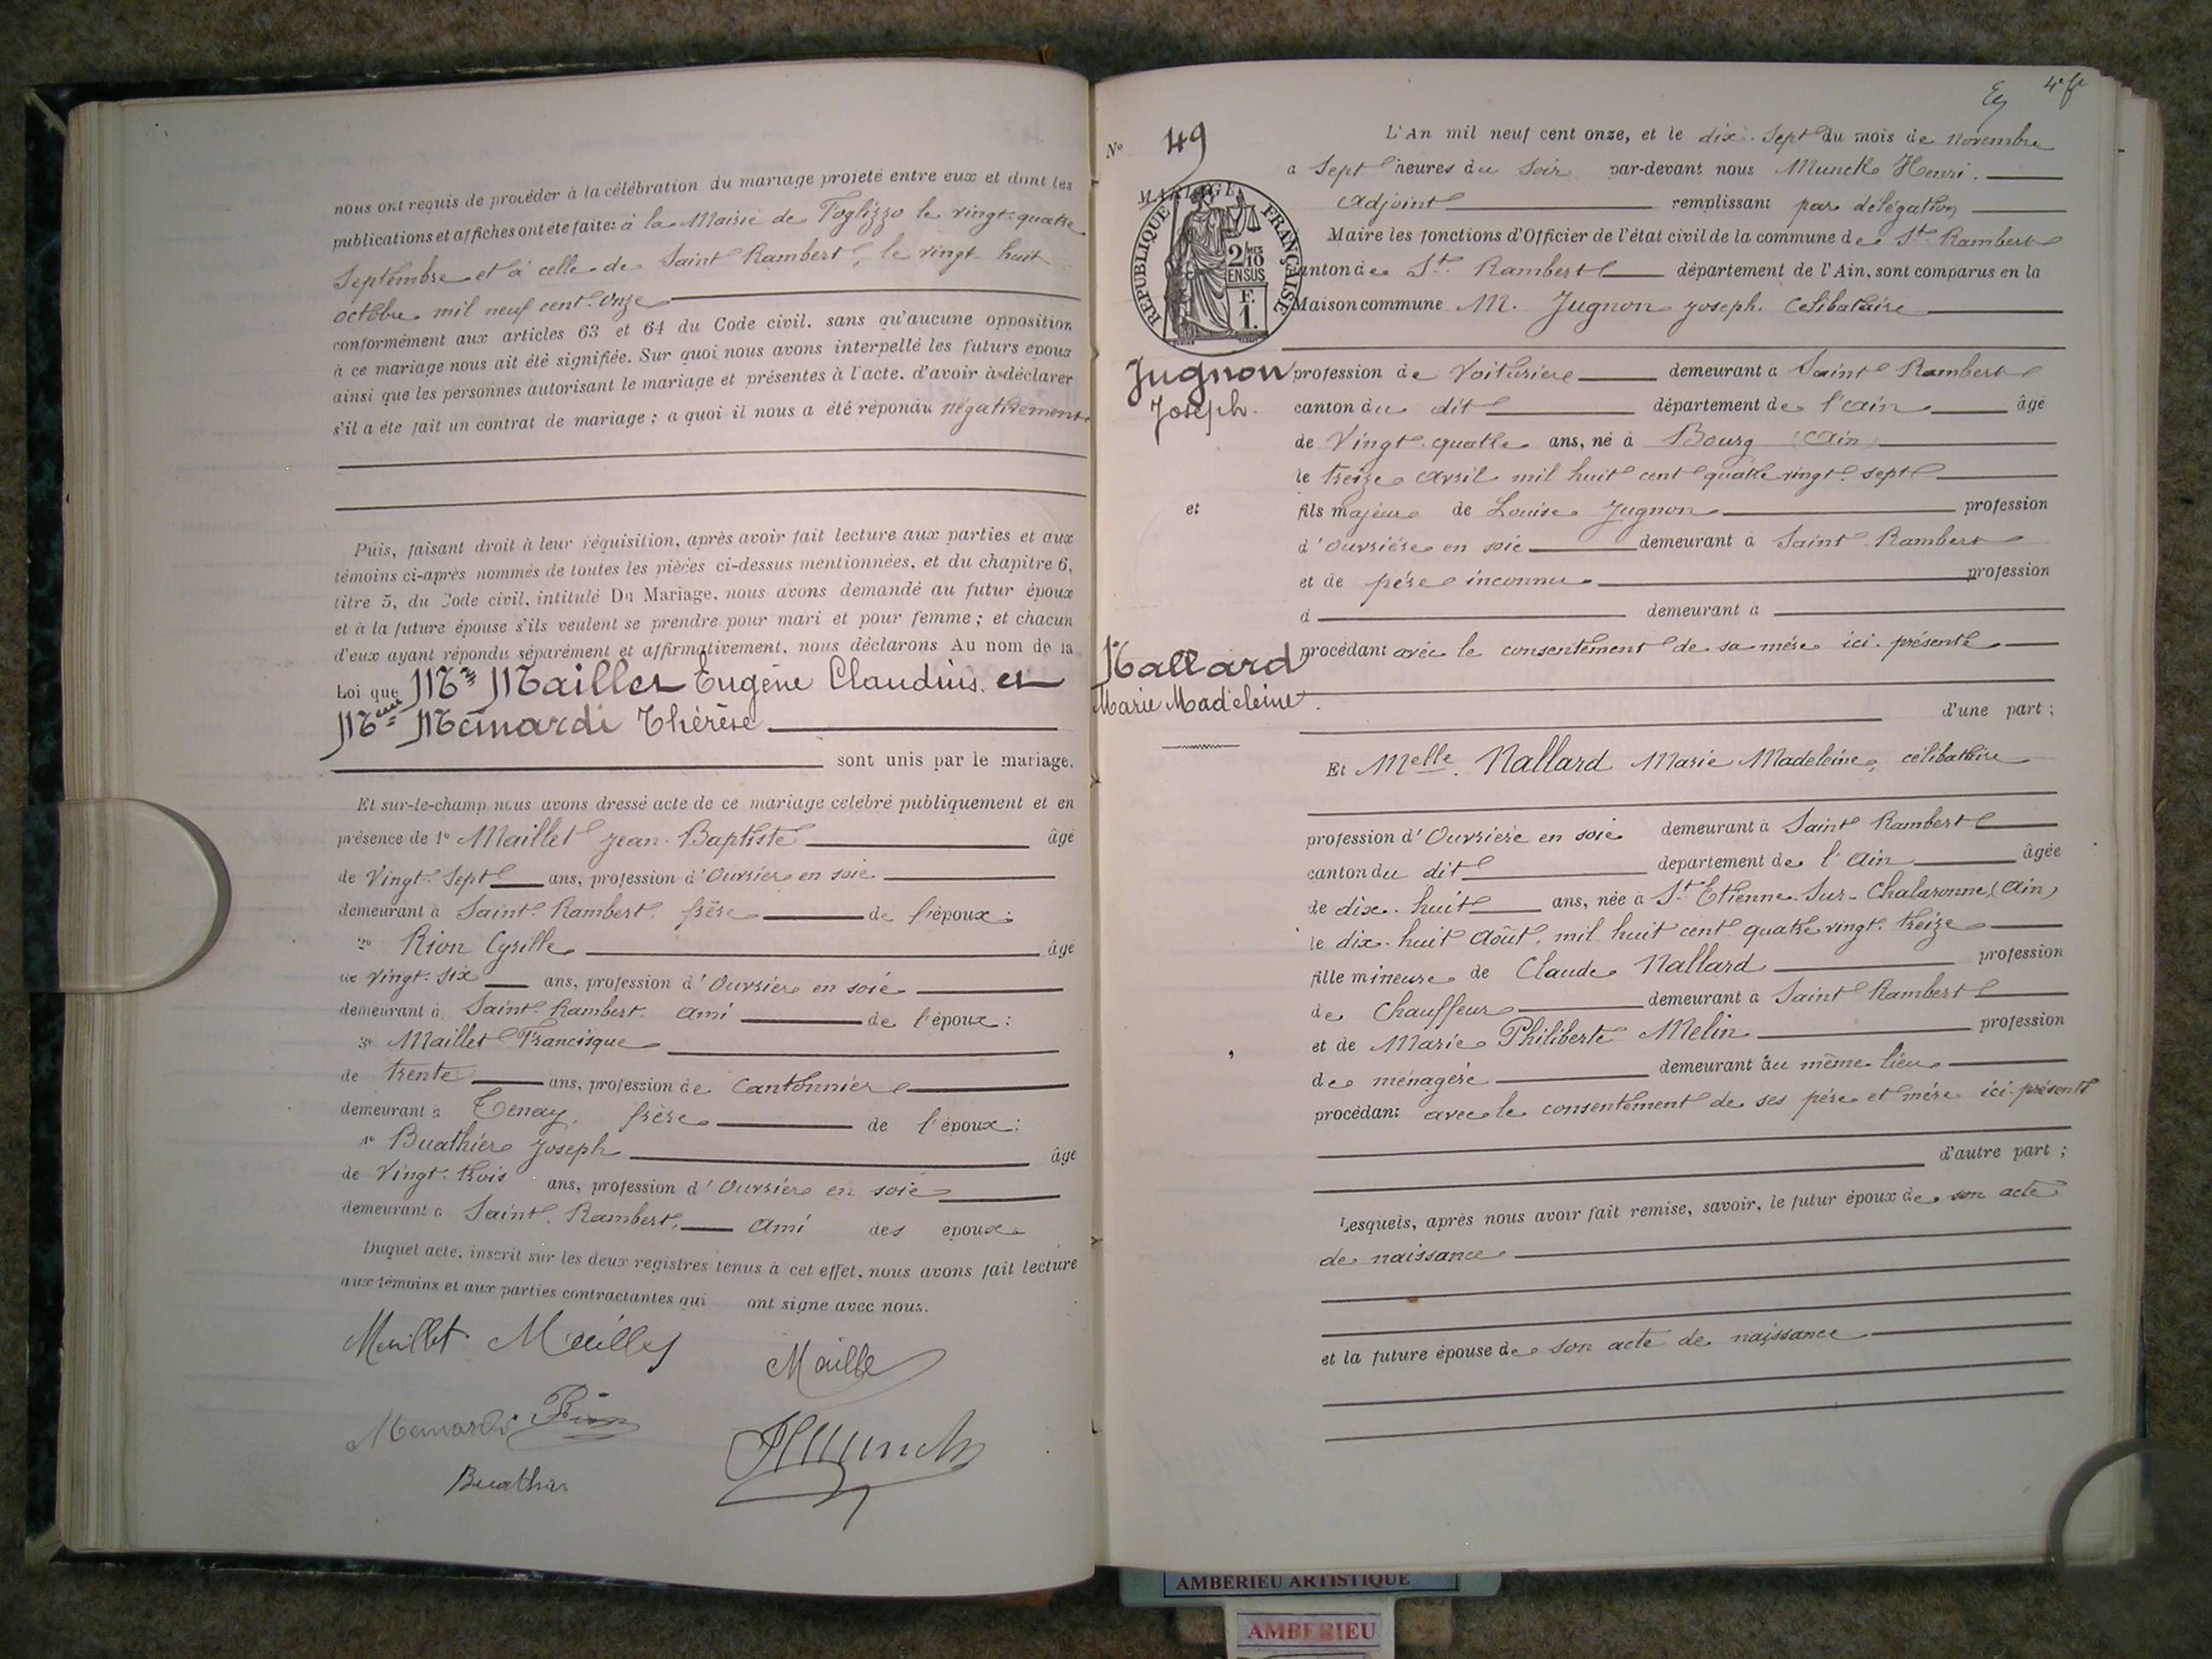 nous ont requis de procéder à la célébration du mariage projeté entre eux et dont les
publications et affiches ont été faites à la Mairie de Foglizzo le vingt-quatre
Septembre et à celle de Saint Rambert, le vingt huit
octobre mil neuf cent onze
conformément aux articles 63 et 64 du Code civil, sans qu'aucune opposition
à ce mariage nous ait été signifiée. Sur quoi nous avons interpellé les futurs époux
ainsi que les personnes autorisant le mariage et présentes à l'acte, d'avoir à déclarer
s'il a été fait un contrat de mariage ; a quoi il nous a été répondu négativement
Puis, faisant droit à leur réquisition, après avoir fait lecture aux parties et aux
témoins ci-après nommés de toutes les pièces ci-dessus mentionnées, et du chapitre 6,
titre 5, du Code civil, intitulé Du Mariage, nous avons demandé au futur époux
et à la future épouse s'ils veulent se prendre pour mari et pour femme ; et chacun
d'eux ayant répondu séparément et affirmativement, nous déclarons Au nom de la
Loi que Mr Maillet Eugène Claudius et
Melle Mémardi Thérèse
sont unis par le mariage.
Et sur-le-champ nous avons dressé acte de ce mariage célébré publiquement et en
présence de 1º Maillet Jean-Baptiste âgé
de Vingt-Sept ans, profession d'Ouvrier en soie
demeurant à Saint-Rambert, frère de l'époux ;
2º Rion Cyrille âgé
de vingt-six ans, profession d'Ouvrier en soie
demeurant à Saint-Rambert ami de l'époux ;
3º Maillet Francisque
de trente ans, profession de Cantonnier
demeurant à Tenay, frère de l'époux ;
4º Buathier Joseph âgé
de Vingt-trois ans, profession d'Ouvrier en soie
demeurant à Saint-Rambert, Ami des époux
Duquel acte, inscrit sur les deux registres tenus à cet effet, nous avons fait lecture
aux témoins et aux parties contractantes qui ont signé avec nous.
Maillet Maillet
Maillet
Rion
HMunck
Buathier
4e ft
Nº 49
MARIAGE
REPUBLIQUE FRANÇAISE
2/10 EN SUS
F. 1.
L'An mil neuf cent onze, et le dix-Sept du mois de novembre
a Sept heures du Soir par-devant nous Munck Henri.
Adjoint remplissant par délégation
Maire les fonctions d'Officier de l'état civil de la commune de St Rambert
canton de St Rambert département de l'Ain, sont comparus en la
Maison commune M. Jugnon Joseph, Célibataire
Jugnon
Joseph.
profession de Voiturier demeurant à Saint Rambert
canton du dit département de l'Ain âgé
de Vingt-quatre ans, né à Bourg (Ain)
le treize Avril mil huit cent quatre vingt-sept
et
fils majeur de Louise Jugnon profession
d'Ouvrière en soie demeurant à Saint Rambert
et de père inconnu profession
d demeurant à
procédant avec le consentement de sa mère ici-présente
Nallard
Marie Madeleine.
d'une part ;
Et Melle Nallard Marie Madeleine, célibataire
profession d'Ouvrière en soie demeurant à Saint Rambert
canton du dit département de l'Ain âgée
de dix-huit ans, née à St Etienne-Sur-Chalaronne (Ain)
le dix-huit Août mil huit cent quatre vingt-treize
fille mineure de Claude Nallard profession
de Chauffeur demeurant à Saint Rambert
et de Marie Philiberte Melin profession
de ménagère demeurant au même lieu
procédant avec le consentement de ses père et mère ici-présents
d'autre part ;
Lesquels, après nous avoir fait remise, savoir, le futur époux de son acte
de naissance
et la future épouse de son acte de naissance
AMBERIEU ARTISTIQUE
AMBERIEU